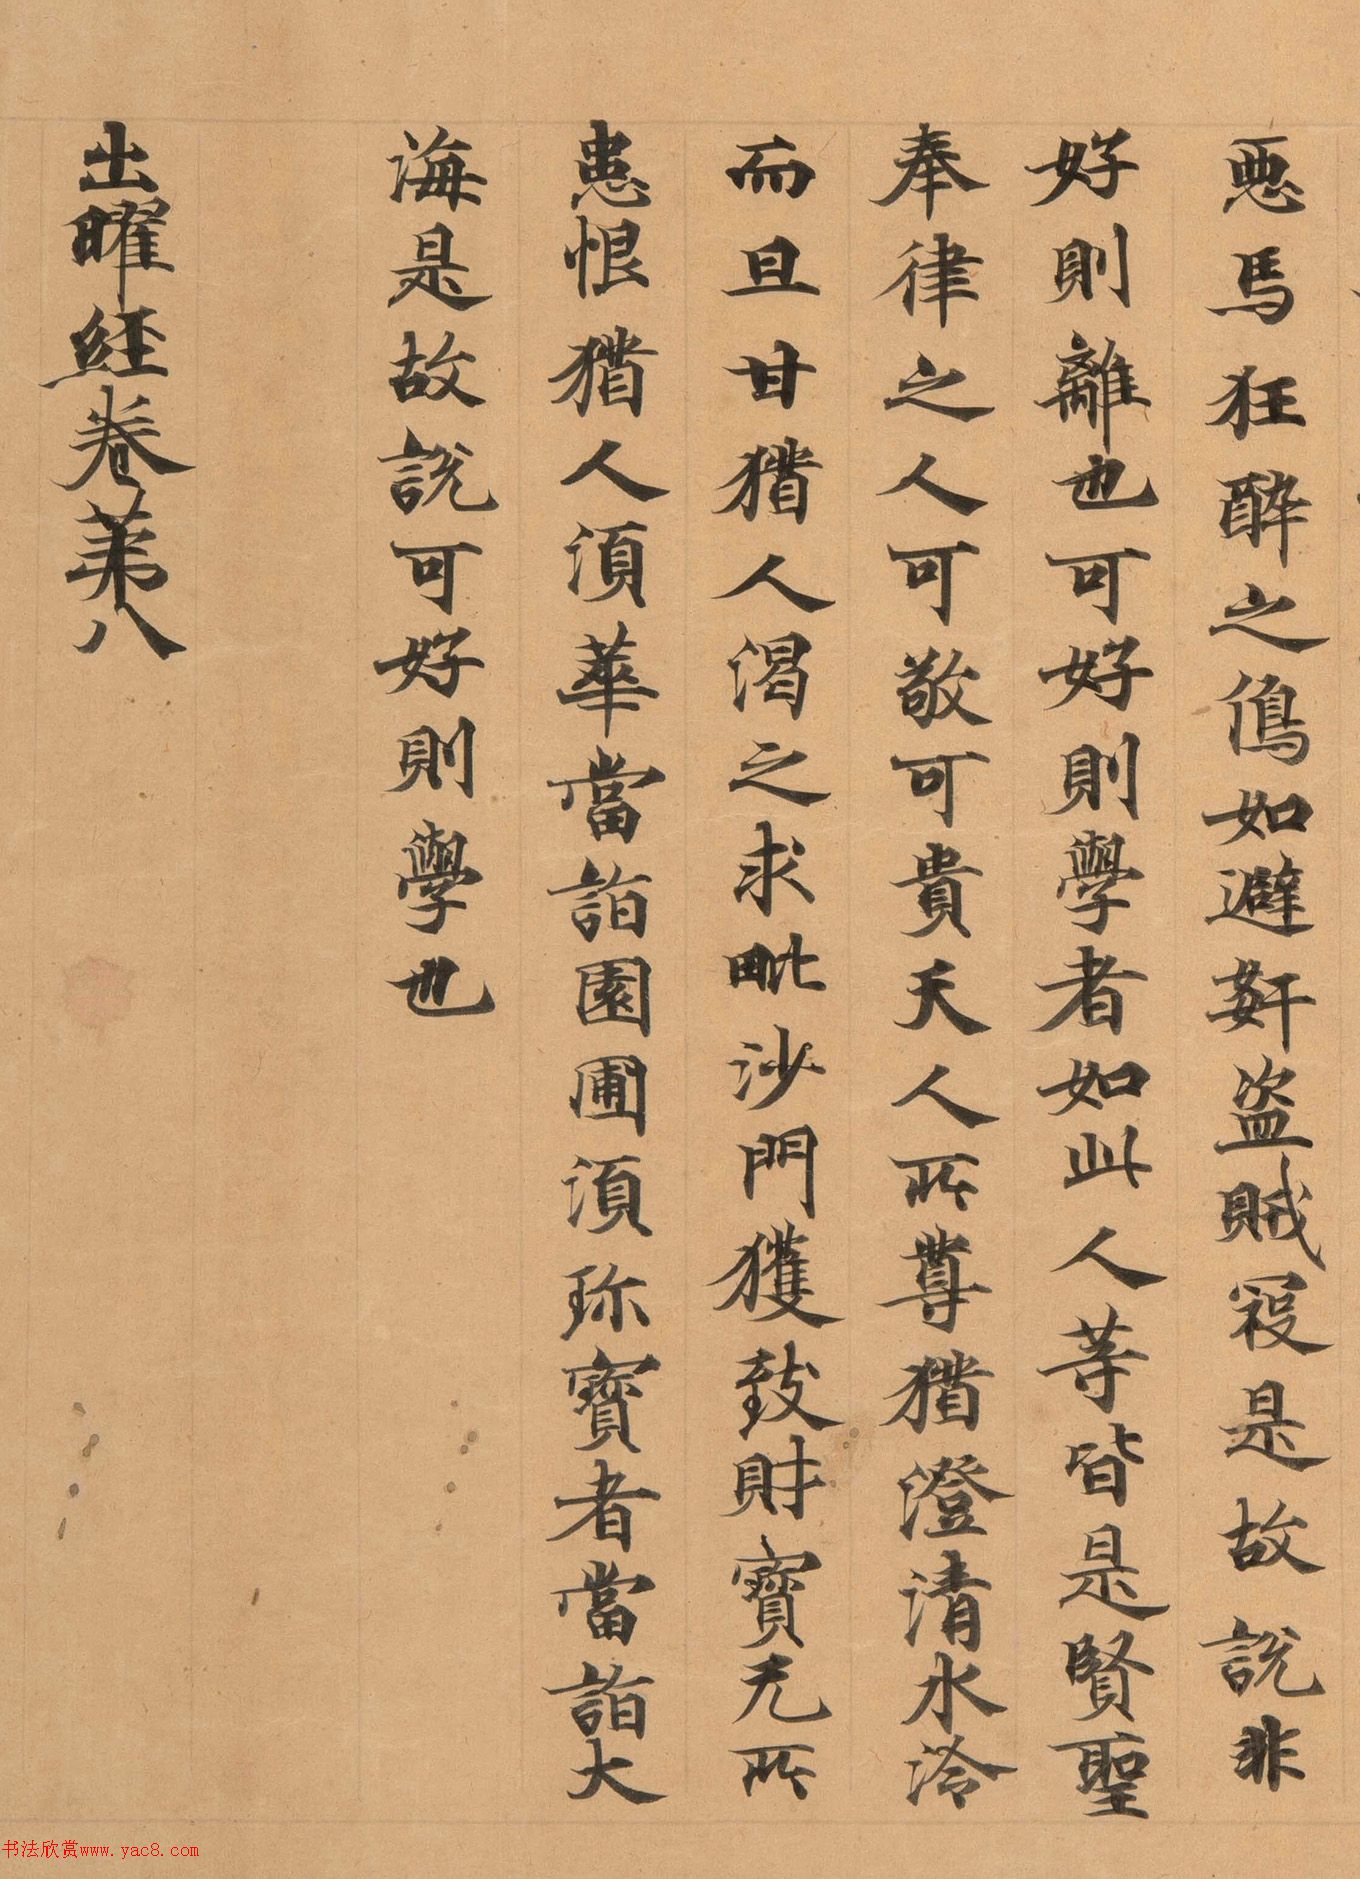 悪馬狂醉之象如避姧盜賊寇是故說非
好則離也可好則學者如此人等皆是賢聖
奉律之人可敬可貴天人所尊猶澄清水泠
而且甘猶人渴之求毗沙門獲致財寶无所
患恨猶人須華當詣園圃須珎寶者當詣大
海是故說可好則學也
出曜經卷苐八
书法欣赏www.yac8.com